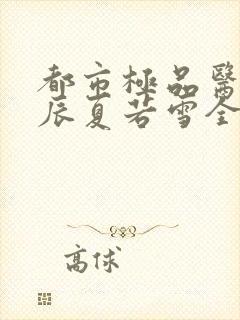 都市極品醫
辰夏若雪全
高俅